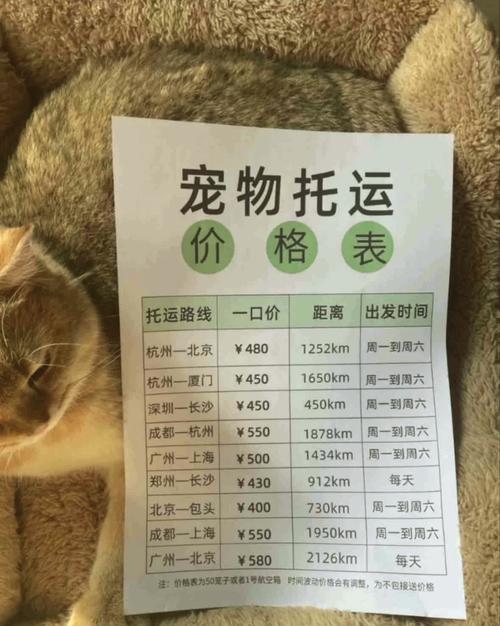 宠物托运
价格表
托运路线 一口价 距离 出发时间
杭州—北京 ￥480 1252km 周一到周六
杭州—厦门 ￥450 1650km 周一到周六
深圳—长沙 ￥450 450km 周一到周六
成都—杭州 ￥550 1878km 周一到周六
广州—上海 ￥500 1434km 周一到周六
郑州—长沙 ￥430 912km 每天
北京—包头 ￥400 730km 周一到周六
成都—上海 ￥550 1950km 周一到周六
广州—北京 ￥580 2126km 每天
注：价格表为50笼子或者1号航空箱 时间波动价格会有调整，为不包接送价格